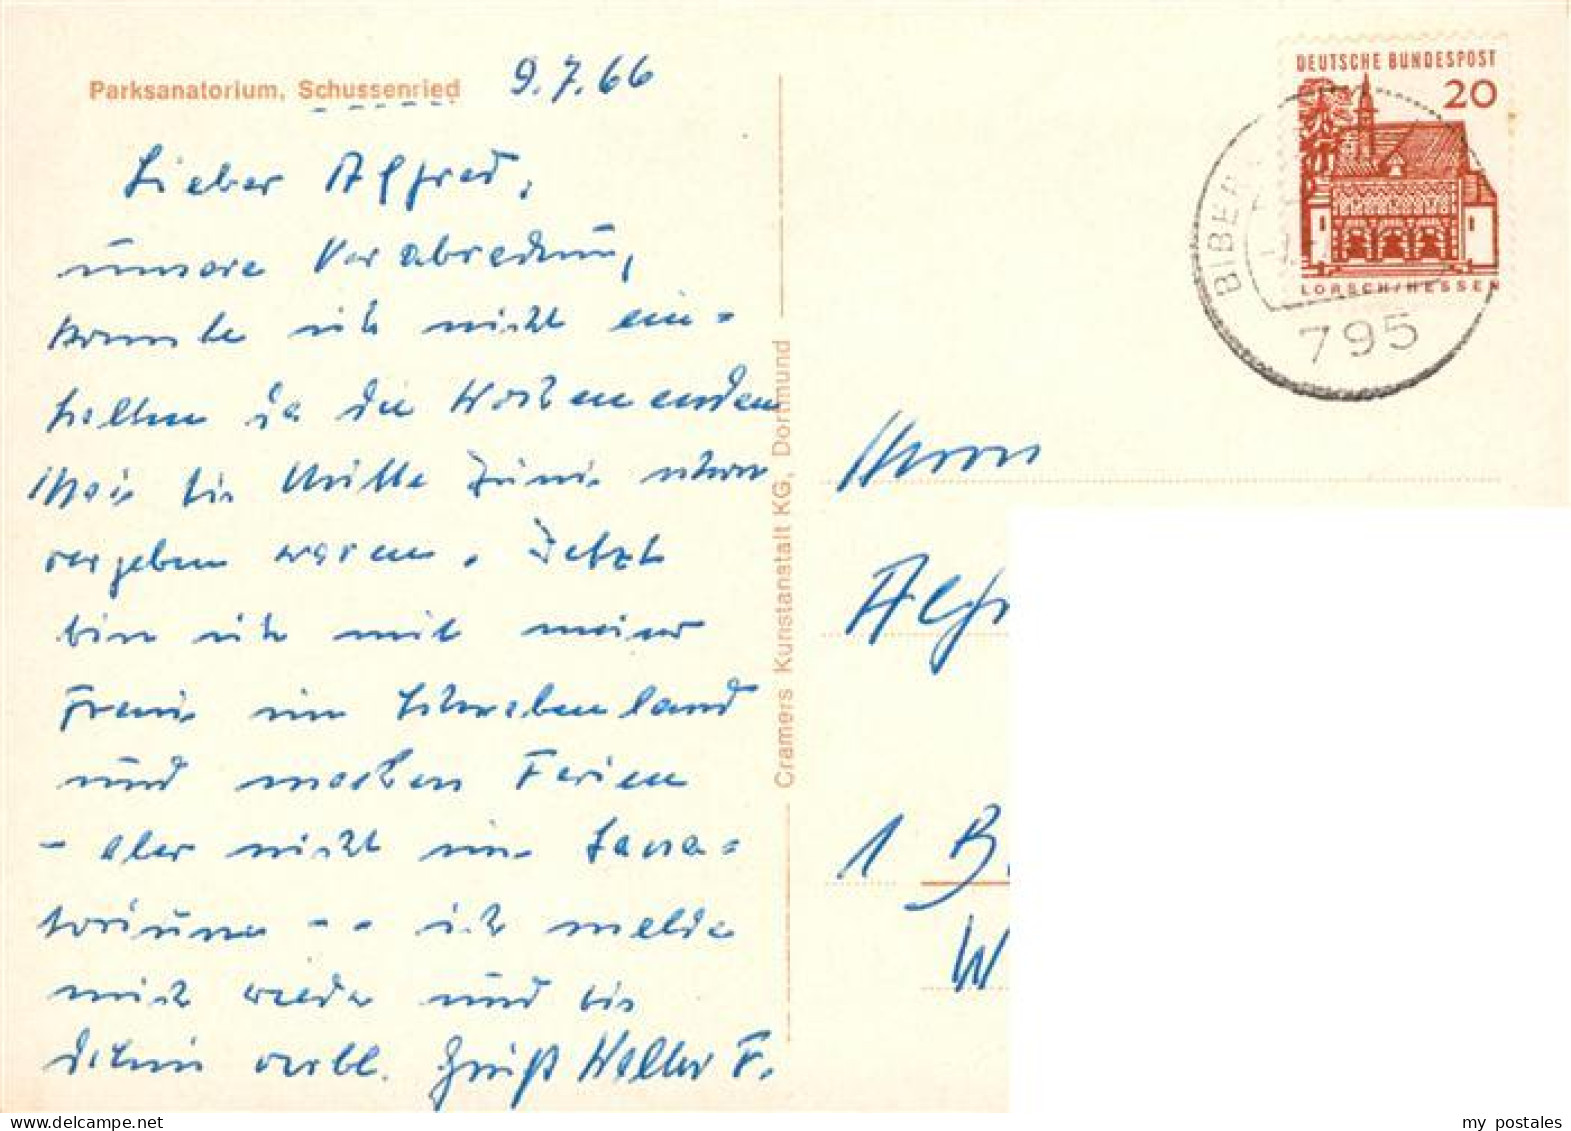 Parksanatorium, Schussenried
9.7.66
Lieber Alfred,
unsere Verabredung,
konnte ich nicht ein=
halten da die Wochenenden
Mai bis Mitte Juni schon
vergeben waren. Jetzt
bin ich mit meiner
Frau im Schwabenland
und machen Ferien
- aber nicht im Sana=
torium - - ich melde
mich wieder und bis
dahin verbl. Gruß Walter F.
Cramers Kunstanstalt KG, Dortmund
DEUTSCHE BUNDESPOST
20
LORSCH/HESSEN
BIBER
795
Herrn
Alfr
1 B
W
my postales